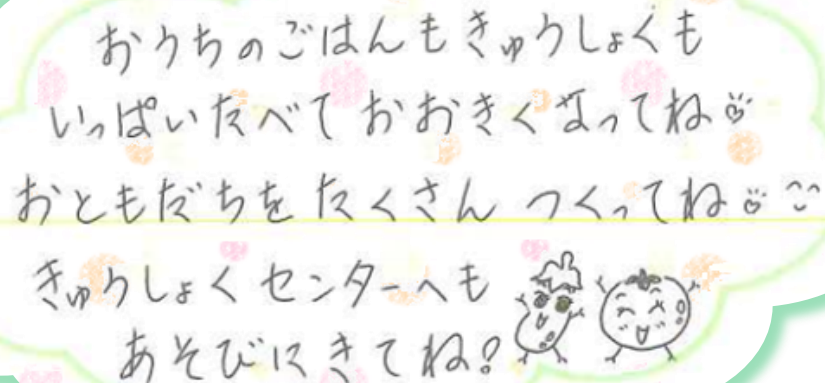 おうちのごはんもきゅうしょくも
いっぱいたべて おおきくなってね
おともだちを たくさん つくってね
きゅうしょくセンターへも
あそびにきてね?